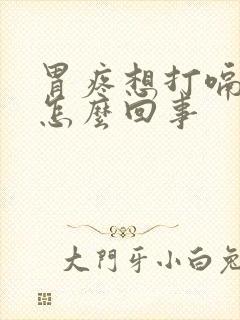 胃疼想打嗝
怎麼回事
大門牙小白兔